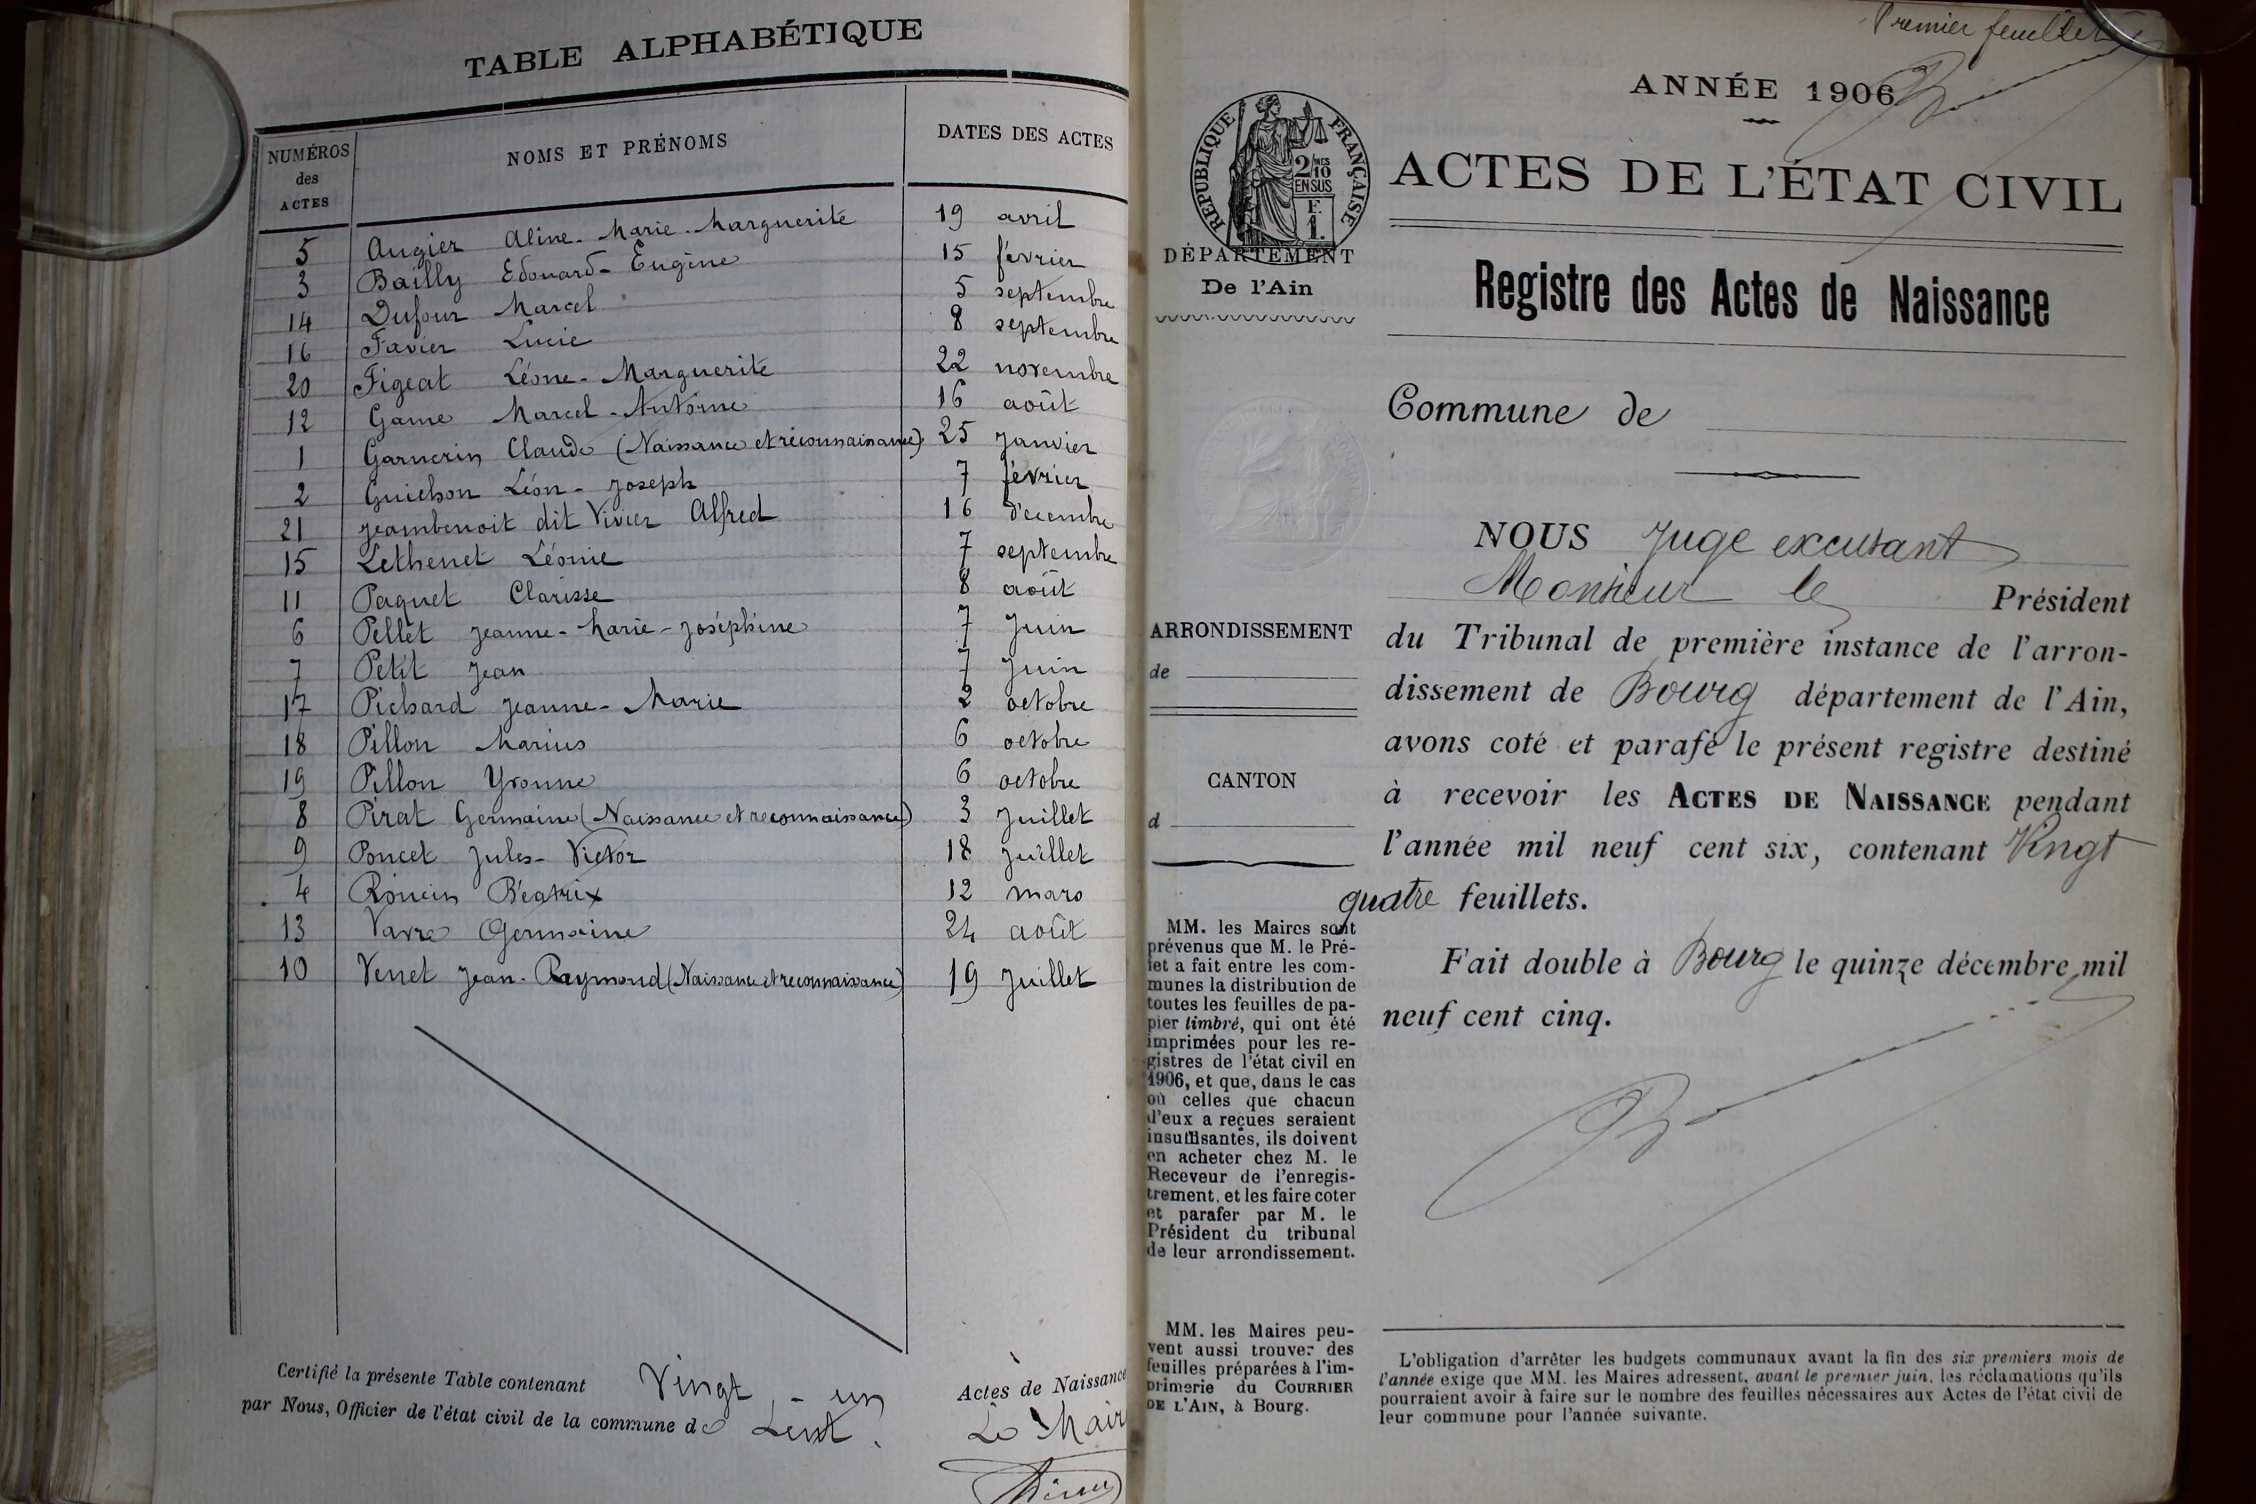 TABLE ALPHABÉTIQUE
NUMÉROS des ACTES NOMS ET PRÉNOMS DATES DES ACTES
5 Augier Aline-Marie-Marguerite 19 avril
3 Bailly Edouard-Eugène 15 février
14 Dufour Marcel 5 septembre
16 Favier Lucie 8 septembre
20 Figeat Léone-Marguerite 22 novembre
12 Game Marcel-Antoine 16 août
1 Garnerin Claude (Naissance et reconnaissance) 25 janvier
2 Guichon Léon-Joseph 7 février
21 Jeambenoit dit Vivier Alfred 16 décembre
15 Lethenet Léonie 7 septembre
11 Paquet Clarisse 8 août
6 Pellet Jeanne-Marie-Joséphine 7 Juin
7 Petit Jean 7 Juin
17 Pichard Jeanne-Marie 2 octobre
18 Pillon Marius 6 octobre
19 Pillon Yvonne 6 octobre
8 Pirat Germaine (Naissance et reconnaissance) 3 Juillet
9 Poncet Jules-Victor 18 Juillet
4 Roncin Béatrix 12 mars
13 Vavre Germaine 24 août
10 Venet Jean-Raymond (Naissance et reconnaissance) 19 Juillet
Certifié la présente Table contenant Vingt-un Actes de Naissance
par Nous, Officier de l'état civil de la commune de Lent. Le Mair
Premier feuillet
ANNÉE 1906
RÉPUBLIQUE FRANÇAISE
2/10MES
EN SUS
F.
1.
ACTES DE L'ÉTAT CIVIL
DÉPARTEMENT
De l'Ain
Registre des Actes de Naissance
Commune de
NOUS Juge excusant
Monsieur le Président
du Tribunal de première instance de l'arron-
dissement de Bourg département de l'Ain,
avons coté et parafé le présent registre destiné
à recevoir les ACTES DE NAISSANCE pendant
l'année mil neuf cent six, contenant Vingt
quatre feuillets.
Fait double à Bourg le quinze décembre mil
neuf cent cinq.
ARRONDISSEMENT
de
CANTON
d
MM. les Maires sont
prévenus que M. le Pré-
fet a fait entre les com-
munes la distribution de
toutes les feuilles de pa-
pier timbré, qui ont été
imprimées pour les re-
gistres de l'état civil en
1906, et que, dans le cas
où celles que chacun
d'eux a reçues seraient
insuffisantes, ils doivent
en acheter chez M. le
Receveur de l'enregis-
trement, et les faire coter
et parafer par M. le
Président du tribunal
de leur arrondissement.
MM. les Maires peu-
vent aussi trouver des
feuilles préparées à l'im-
primerie du COURRIER
DE L'AIN, à Bourg.
L'obligation d'arrêter les budgets communaux avant la fin des six premiers mois de
l'année exige que MM. les Maires adressent, avant le premier juin, les réclamations qu'ils
pourraient avoir à faire sur le nombre des feuilles nécessaires aux Actes de l'état civil de
leur commune pour l'année suivante.